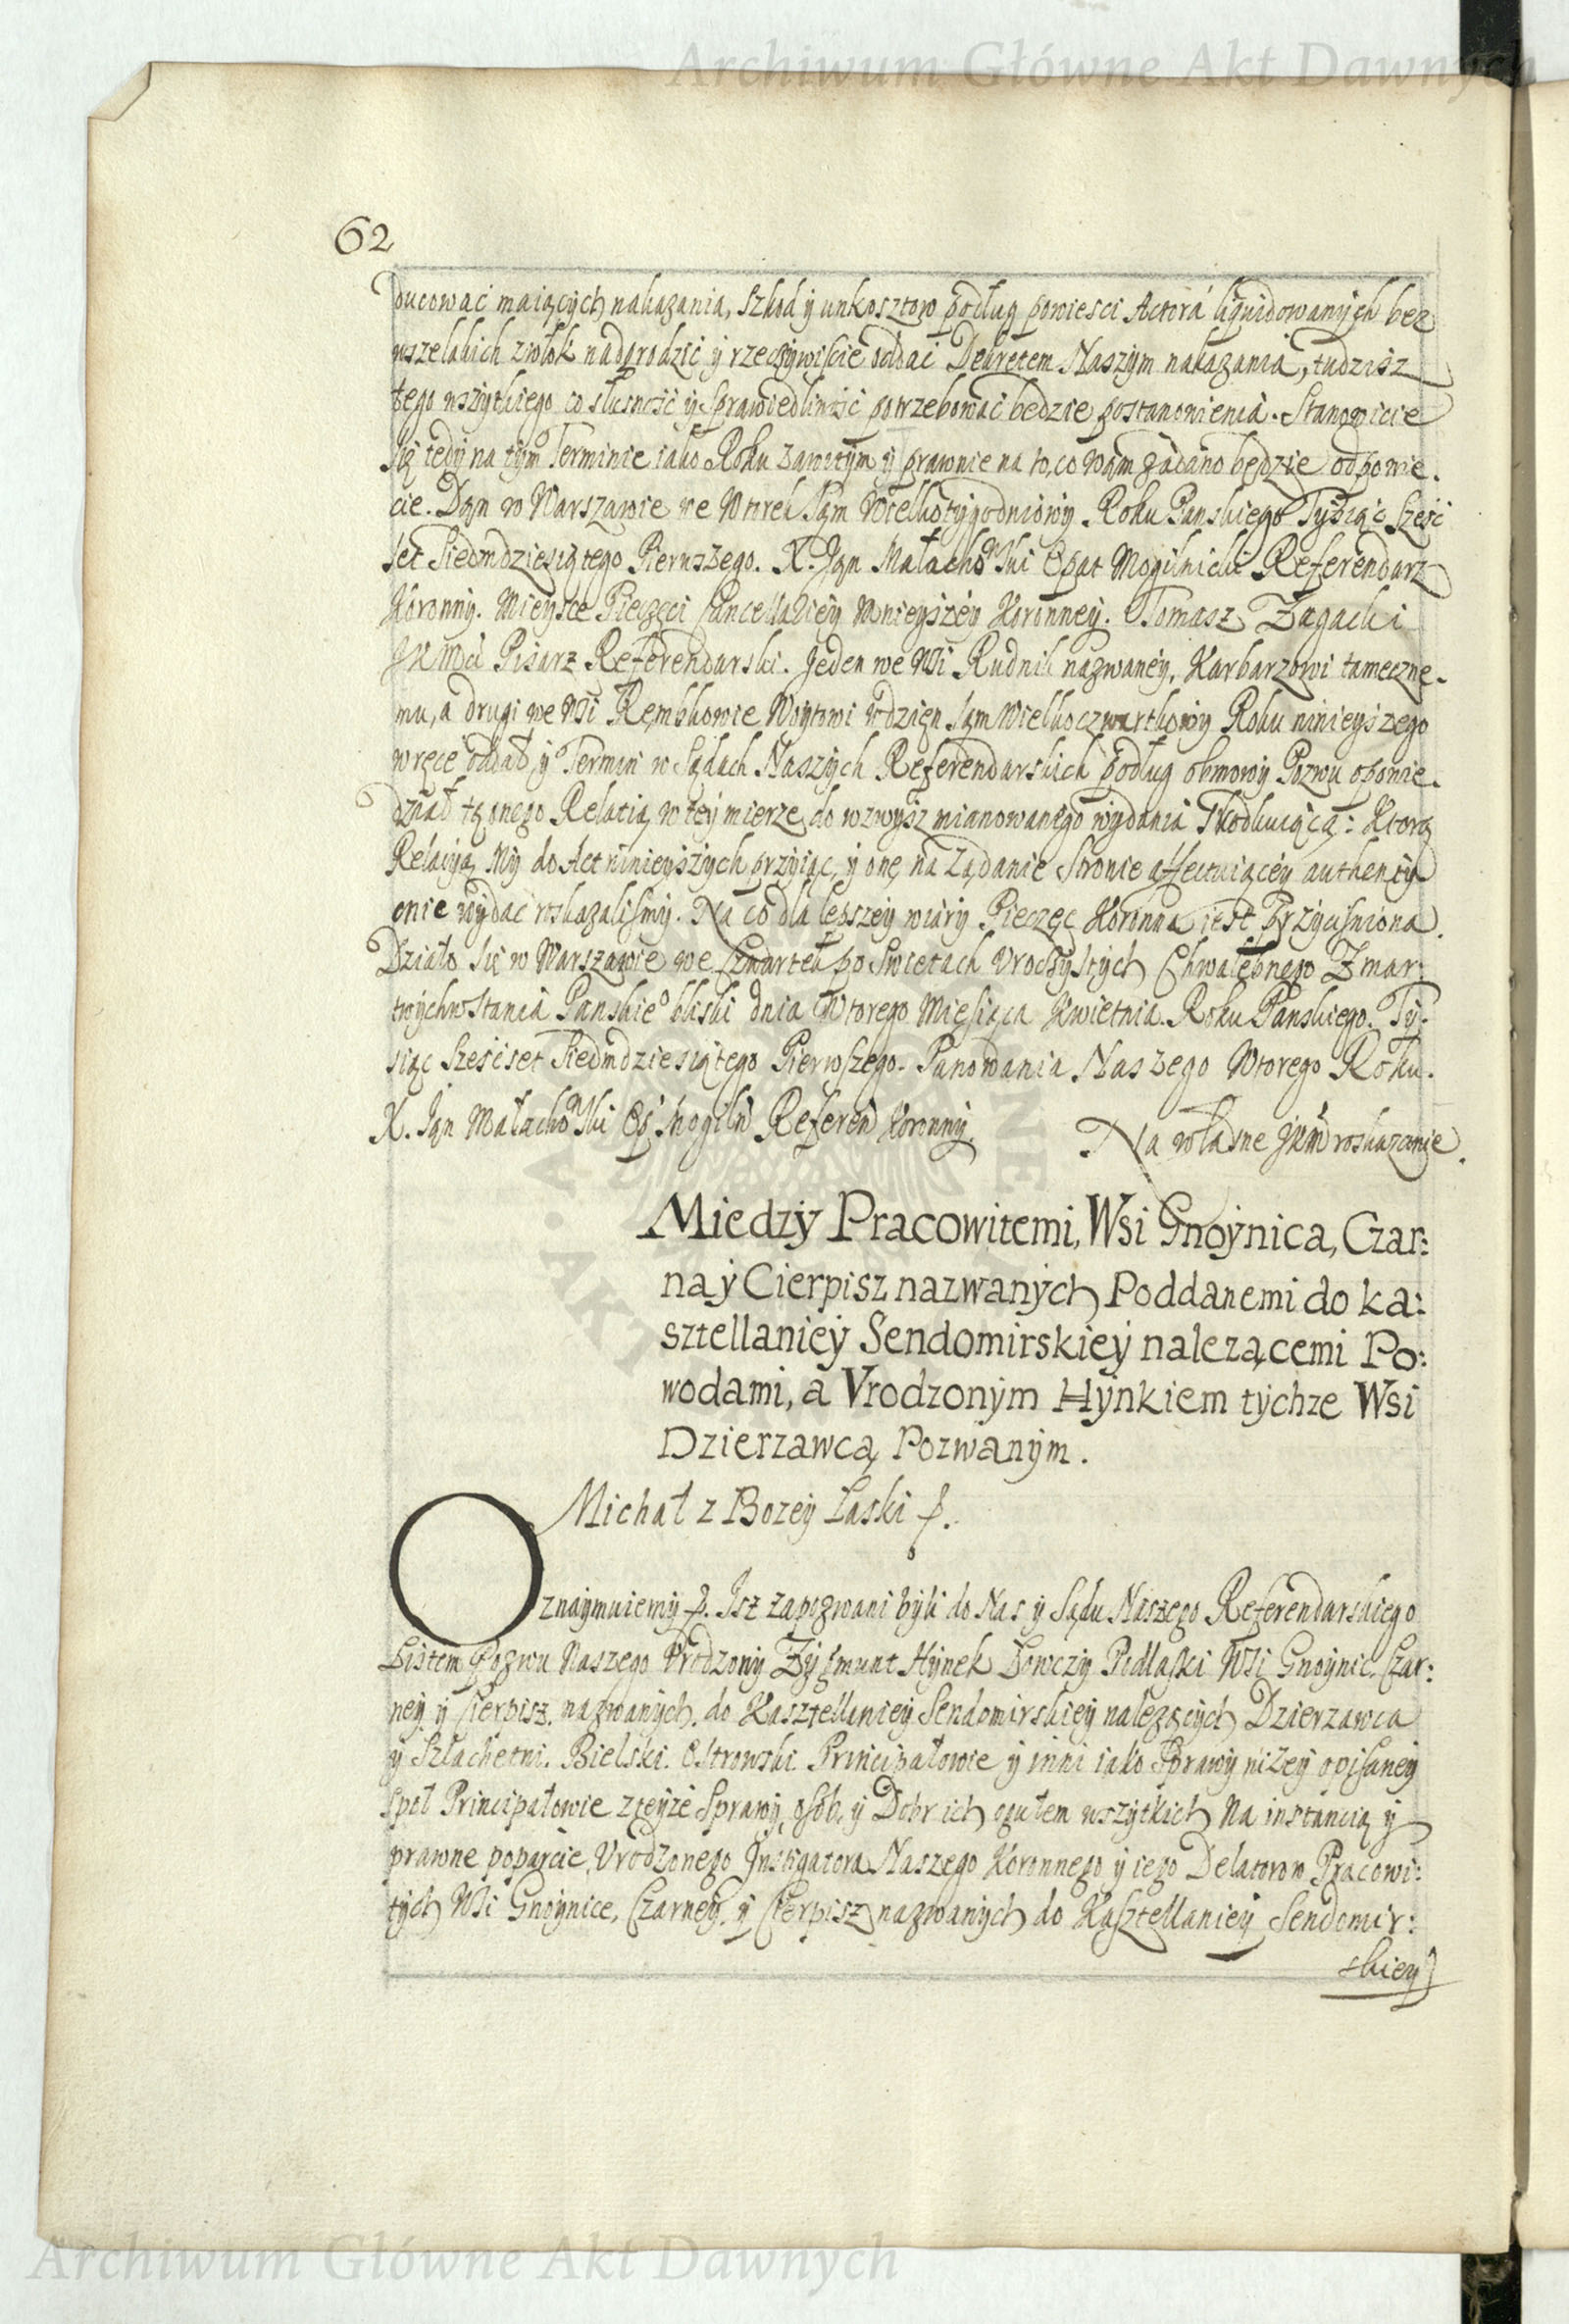 Archiwum Główne Akt Dawnych
62
ducować maiących nakazania, szkod ÿ unkosztow podług powiesci Actorá liquidowanÿch bez
wszelakich zwłok nadgrodzić ÿ rzeczÿwiście oddać Dekretem Naszÿm nakazania, tudzisz
tego wszÿtkiego co słusność ÿ Sprawiedliwość potrzebować będzie postanowienia. Stanowicie
się tedÿ na tÿm Terminie iako Roku zawitÿm ÿ prawnie na to, co wąm zadáno będzie odpowie-
cie. Dąn w Warszawie we Wtorek Sąm Wielkotÿgodniowÿ. Roku Panskiego Tÿsiąc Sześć
set Siedmdziesiątego Pierwszego. X. Jąn Małachowski Opat Mogilnicki Referendarz
Koronnÿ. Mieÿsce Pieczęci Cancellarieÿ Mnieÿszéÿ Koronneÿ. Tomasz Zagacki
JKMći Pisarz Referendarski. Jeden we Wsi Rudnik nazwaneÿ, Karbarzowi tameczne-
mu, a drugi we Wsi Rembkowie Woÿtowi w dzięn sąm Wielkoczwartkowÿ Roku ninieÿszego
w ręce oddał, ÿ Termin w Sądach Naszÿch Referendarskich podług obmowÿ Pozwu opowie-
dział tę onego Relatią w teÿ mierze do wzwÿsz mianowanego wÿdania Skodkuiącą: Ktorą
Relaciÿą Mÿ do Act ninieÿszÿch prziąc, ÿ onę na Ządanie Stronie affectuiąceÿ authentÿ-
cnie wÿdać roskazalismÿ. Na co dla lepszeÿ wiárÿ Pieczęc Koronna iest Przÿcisniona.
Działo się w Warszawie we Czwartek po Swietach Uroczÿstÿch Chwalebnego Zmar:
twÿchwstania Panskieo bliski dnia Wtorego Miesiąca Kwietnia. Roku Panskiego. Tÿ:
siąc Sześćset Siedmdziesiątego Pierwszego. Panowania Naszego Wtorego Roku.
X. Jąn Małachowski Op Mogiln Referen Koronnÿ. Na własne JKM roskazanie.
Miedzÿ Pracowitemi, Wsi Gnoÿnica, Czar:
na ÿ Cierpisz nazwanÿch Poddanemi do ka:
sztellanieÿ Sendomirskieÿ nalezącemi Po:
wodami, a Vrodzonÿm Hÿnkiem tÿchze Wsi
Dzierzawcą Pozwanÿm.
Michał z Bozeÿ Łaski p.
Oznaÿmuiemÿ p. Isz zapozwani bÿli do Nas ÿ Sądu Naszego Referendarskiego
Listem Pozwu Naszego Vrodzonÿ Zÿgmunt Hÿnek Łowczÿ Podlaski Wsi Gnoÿnic, Czar:
neÿ ÿ Cierpisz. nazwanÿch. do Kasztellanieÿ Sendomirskieÿ nalezącÿch Dzierzawca
ÿ Szlachetni. Bielski. Ostrowski. Principałowie ÿ inni iako Sprawÿ nizeÿ opisaneÿ
społ Principałowie zteÿże Sprawÿ, osob, ÿ Dobr ich ogułem wszÿtkich Na instancią ÿ
prawne poparcie Vrodzonego Instigatora Naszego Koronnego ÿ iego Delatorow Pracowi:
tÿch Wsi Gnoÿnice, Czarneÿ, ÿ Cierpisz nazwanÿch do Kasztellanieÿ Sendomir:
skieÿ
Archiwum Główne Akt Dawnych